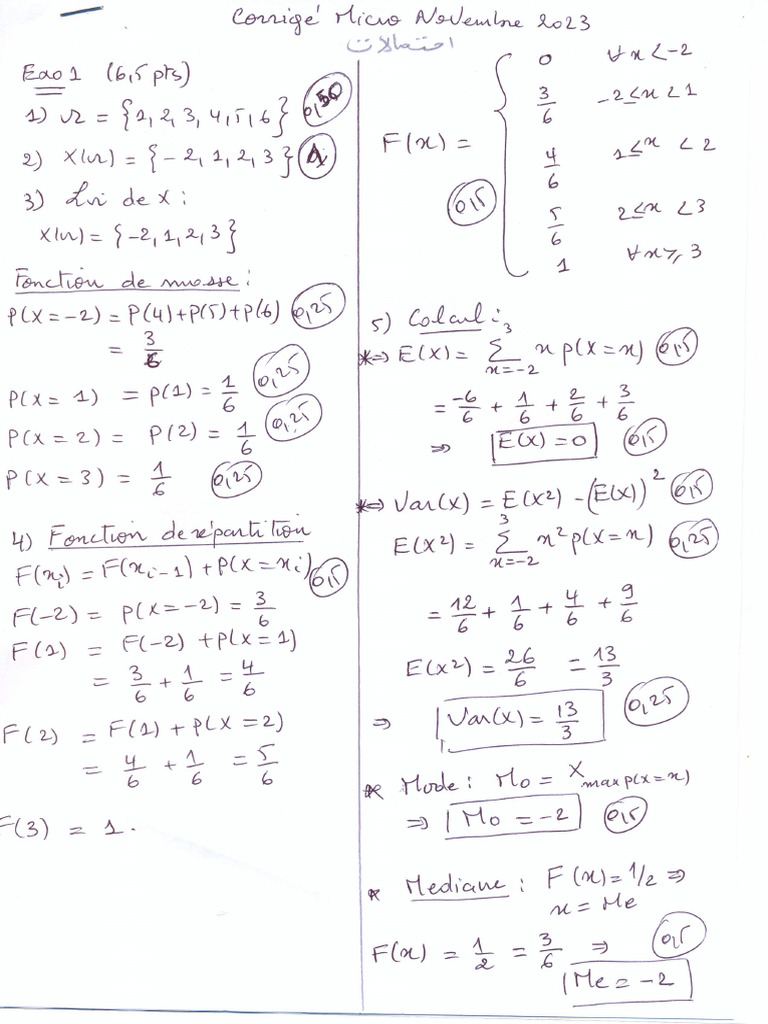 Corrigé Micro Novembre 2023
احتمالات
Exo 1 (6,5 pts)
1) Ω = {1, 2, 3, 4, 5, 6} 0,50
2) X(Ω) = {-2, 1, 2, 3} 1
3) Loi de X :
X(Ω) = {-2, 1, 2, 3}
Fonction de masse :
P(X = -2) = P(4) + P(5) + P(6) 0,25
= 3/6
P(X = 1) = P(1) = 1/6 0,25
P(X = 2) = P(2) = 1/6 0,25
P(X = 3) = 1/6 0,25
4) Fonction de répartition
F(xi) = F(xi-1) + P(X = xi) 0,5
F(-2) = P(X = -2) = 3/6
F(1) = F(-2) + P(X = 1)
= 3/6 + 1/6 = 4/6
F(2) = F(1) + P(X = 2)
= 4/6 + 1/6 = 5/6
F(3) = 1.
F(x) = {
0 ∀x < -2
3/6 -2 ≤ x < 1
4/6 1 ≤ x < 2
5/6 2 ≤ x < 3
1 ∀x ≥ 3
0,5
5) Calcul :
*⇒ E(X) = Σ_{x=-2}^{3} x p(X = x) 0,5
= -6/6 + 1/6 + 2/6 + 3/6
⇒ E(X) = 0 0,5
*⇒ Var(X) = E(X²) - (E(X))² 0,5
E(X²) = Σ_{x=-2}^{3} x² p(X = x) 0,25
= 12/6 + 1/6 + 4/6 + 9/6
E(X²) = 26/6 = 13/3
⇒ Var(X) = 13/3 0,25
* Mode : Mo = X max p(X = x)
⇒ Mo = -2 0,5
* Mediane : F(x) = 1/2 ⇒
x = Me
F(x) = 1/2 = 3/6 ⇒ 0,5
Me = -2